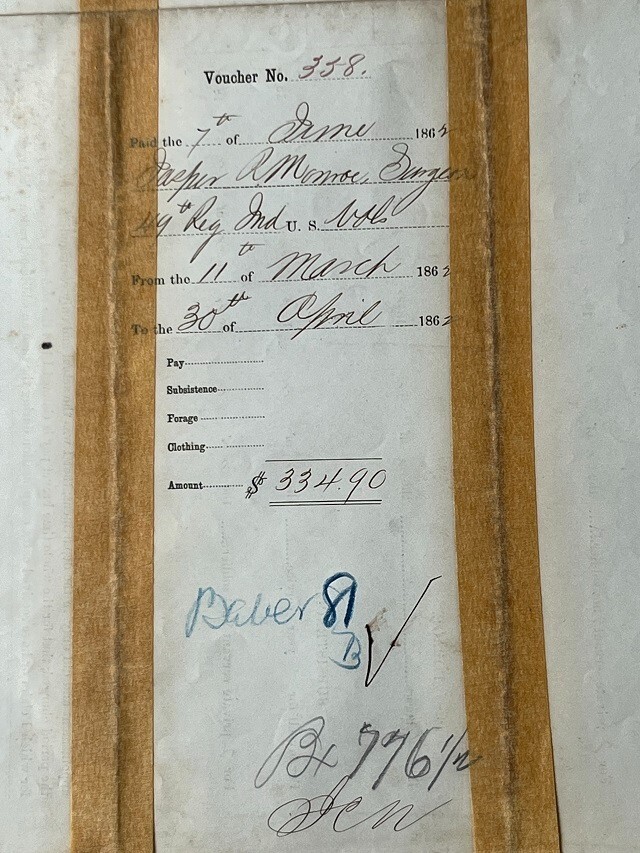 Voucher No. 358.
Paid the 7th of June 1862
Jasper R. Monroe, Surgeon
49th Reg Ind U. S. Vols
From the 11th of March 1862
To the 30th of April 1862
Pay
Subsistence
Forage
Clothing
Amount $ 334.90
81
B
Bx 776 1/2